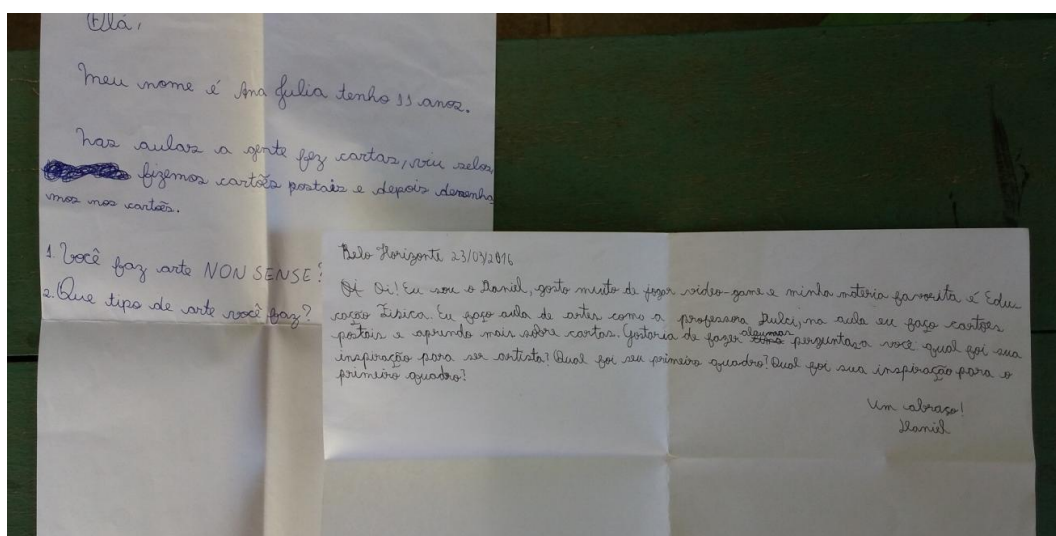 Olá,
Meu nome é Ana Julia tenho 11 anos.
Nas aulas a gente fez cartas, viu selos,
fizemos cartões postais e depois desenha
mos nos cartões.
1. Você faz arte NON SENSE?
2. Que tipo de arte você faz?
Belo Horizonte 23/05/2016
Oi! Eu sou o Daniel, gosto muito de jogar video-game e minha materia favorita é Edu
cação Fisica. Eu faço aula de artes com a professora Dulci, na aula eu faço cartões
postais e aprendo mais sobre cartas. Gostaria de fazer algumas perguntas a você qual foi sua
inspiração para ser artista? Qual foi seu primeiro quadro? Qual foi sua inspiração para o
primeiro quadro?
Um abraço!
Daniel